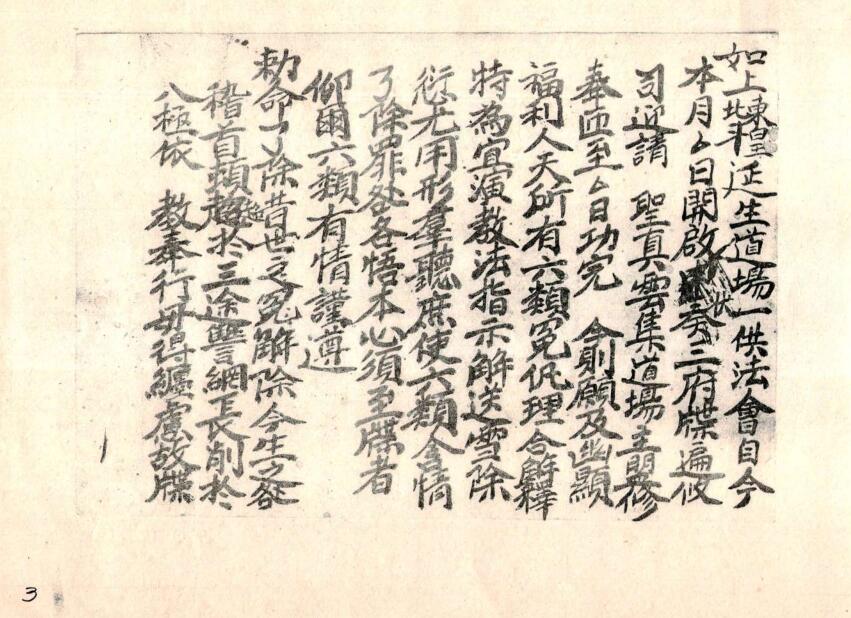 如上揀皇延生道場一供法會自今
本月厶日開啟發三府牒遍攸
司迎請　聖真雲集道場主盟修
奉匝至厶日功完　今則願及幽顯
福利人天所有六類冤仇理合觧釋
特為宜演教法指示觧送雪除
愆尤用形羣聽庶使六類含情
了除罪咎各悟本心須至牒者
仰爾六類有情謹遵
勅命了除昔世之冤觧除今生之咎
稽首頭超於三途詈網長削於
八極依　教奉行毋得纏慮故牒
3